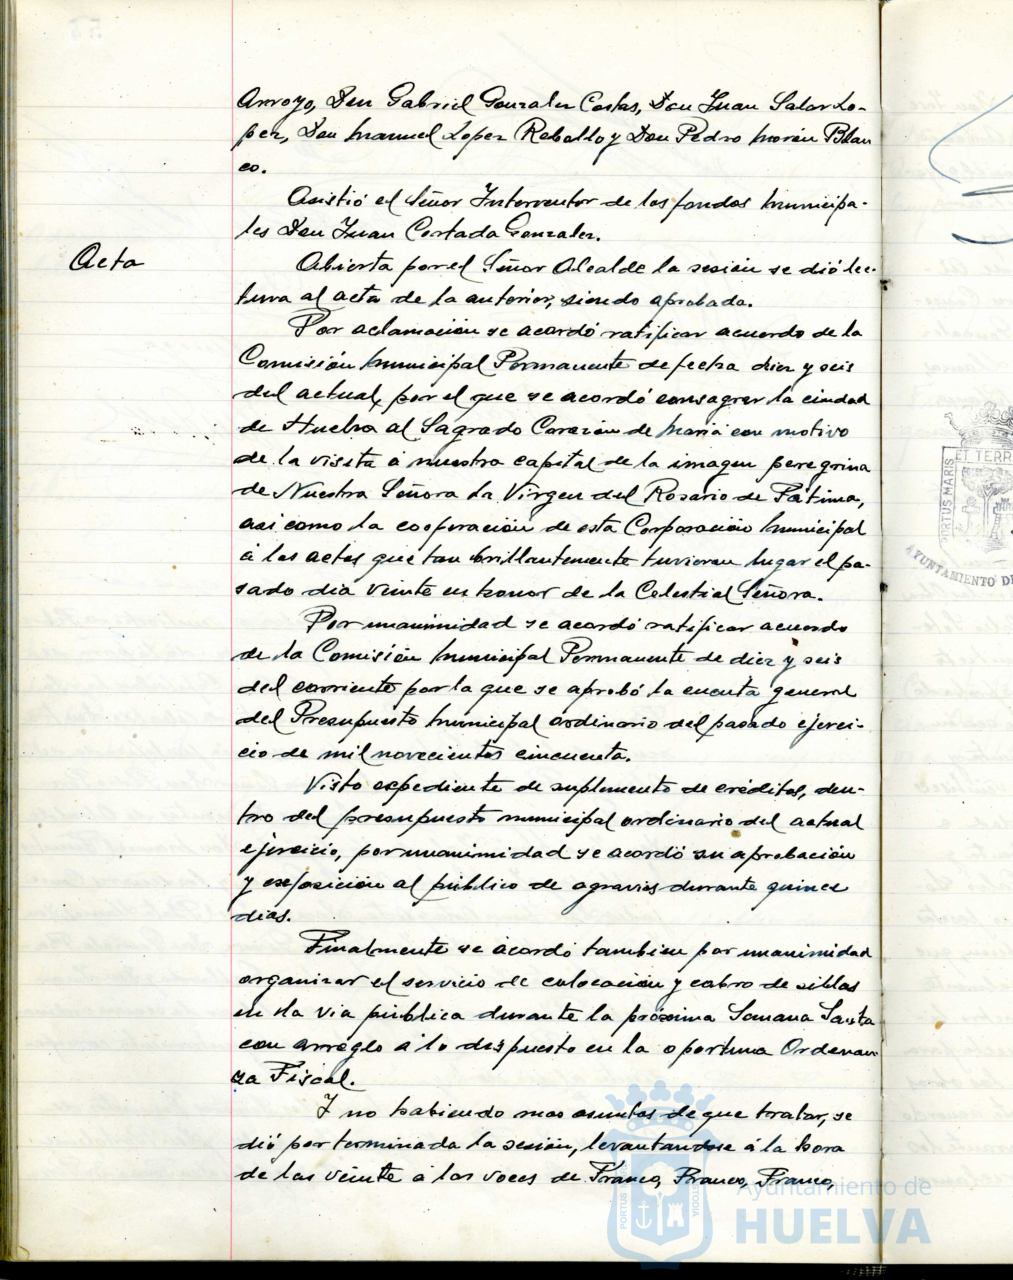 Arroyo, Don Gabriel Gonzalez Costas, Don Juan Salas Lo-
pez, Don Manuel Lopez Rebollo y Don Pedro Morón Blan
co.
Asistió el Señor Interventor de los fondos Municipa-
les Don Juan Cortada Gonzalez.
Acta
Abierta por el Señor Alcalde la sesión se dió lec-
tura al acta de la anterior, siendo aprobada.
Por aclamación se acordó ratificar acuerdo de la
Comisión Municipal Permanente de fecha diez y seis
del actual, por el que se acordó consagrar la ciudad
de Huelva al Sagrado Corazón de Maria con motivo
de la visita á nuestra capital de la imagen peregrina
de Nuestra Señora la Virgen del Rosario de Fátima,
asi como la cooperación de esta Corporación Municipal
á los actos que tan brillantemente tuvieron lugar el pa-
sado dia veinte en honor de la Celestial Señora.
Por unanimidad se acordó ratificar acuerdo
de la Comisión Municipal Permanente de diez y seis
del corriente por la que se aprobó la cuenta general
del Presupuesto Municipal ordinario del pasado ejerci-
cio de mil novecientos cincuenta.
Visto expediente de suplemento de créditos, den-
tro del presupuesto municipal ordinario del actual
ejercicio, por unanimidad se acordó su aprobación
y exposición al público de agravios durante quince
dias.
Finalmente se acordó tambien por unanimidad
organizar el servicio de colocación y cobro de sillas
en la via pública durante la próxima Semana Santa
con arreglo á lo dispuesto en la oportuna Ordenan
za Fiscal.
Y no habiendo mas asuntos de que tratar, se
dió por terminada la sesión, levantandose á la hora
de las veinte á las voces de Franco, Franco, Franco,
PORTUS MARIS
ET TERR
AYUNTAMIENTO DE
Ayuntamiento de
HUELVA